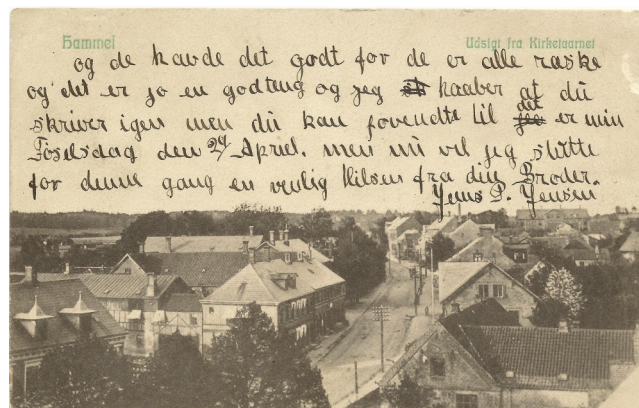 Hammel
Udsigt fra Kirketaarnet
og de havde det godt for de er alle raske
og det er jo en godteng og jeg haaber at du
skriver igen men du kan foventte til det er min
Föselsdag den 29 Apriel. men nu vil jeg slutte
for denne gang en venlig Hilsen fra din Broder.
Jens P. Jensen